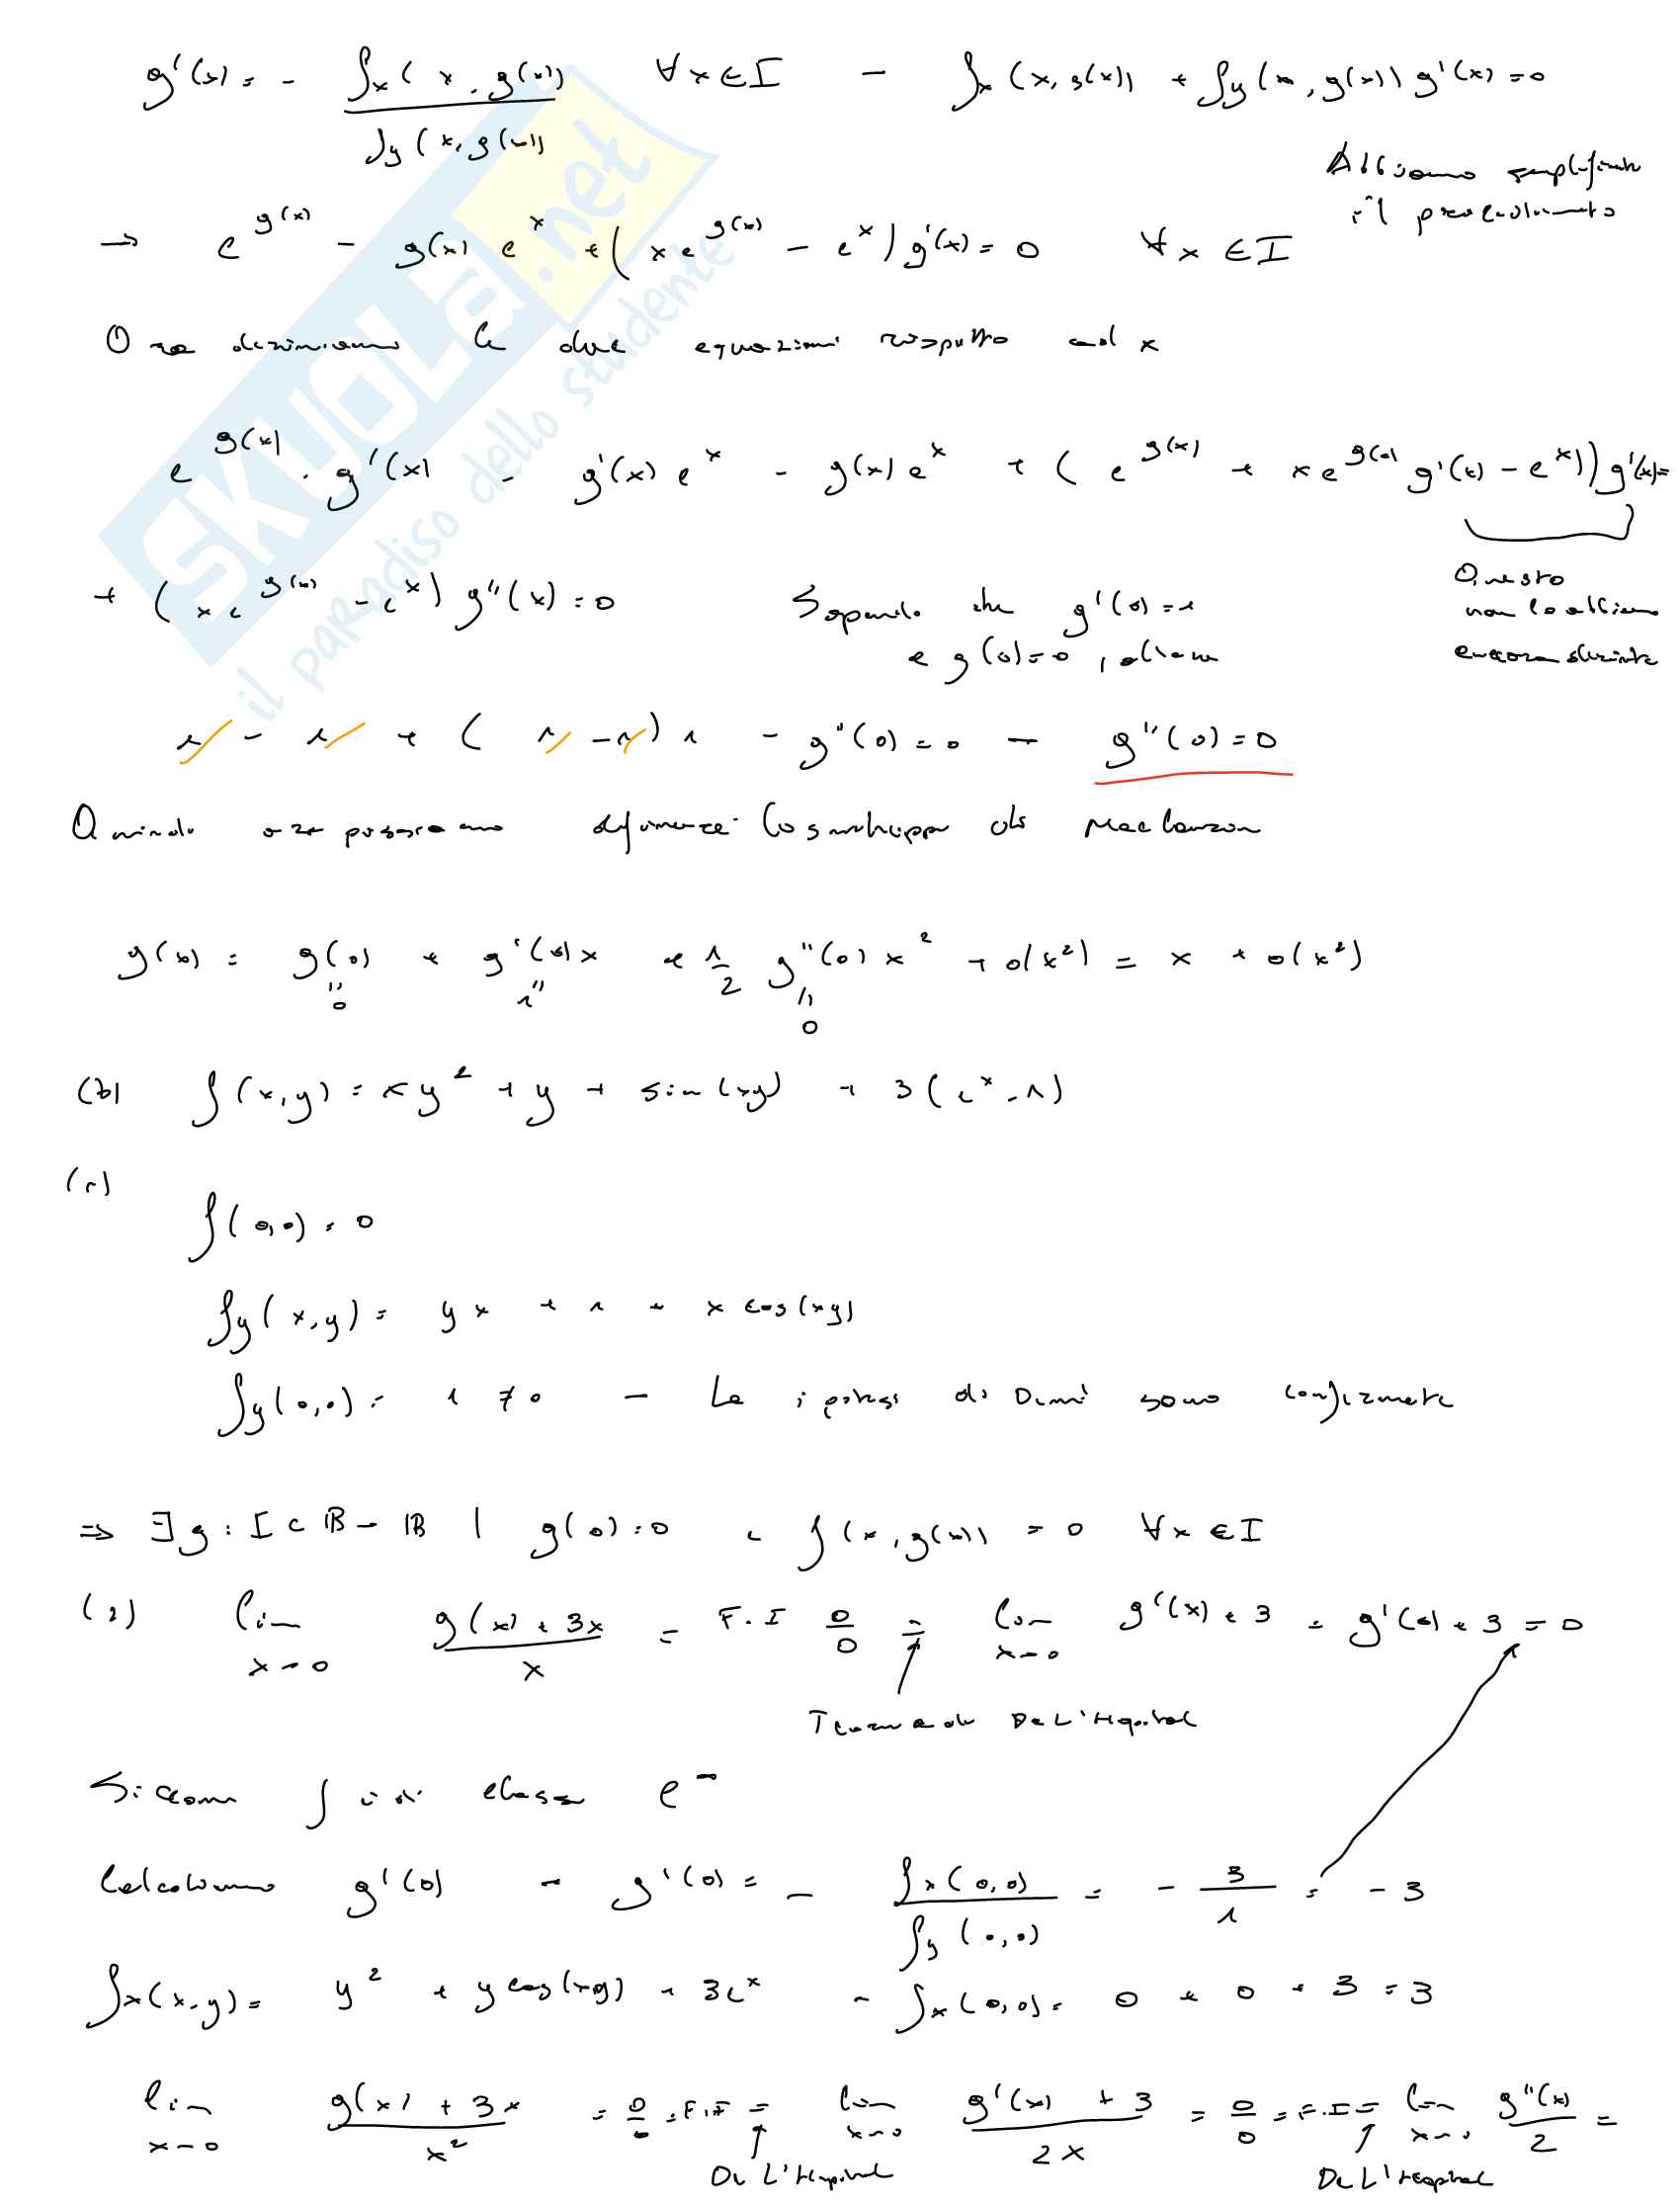 g'(x) = - fx(x, g(x)) / fy(x, g(x)) ∀x∈I - fx(x, g(x)) + fy(x, g(x)) g'(x) = 0
Abbiamo semplificato
il procedimento
→ e^g(x) - g(x) e^x + (x e^g(x) - e^x) g'(x) = 0 ∀x ∈ I
Ora deriviamo le due equazioni rispetto ad x
e^g(x) · g'(x) - g'(x) e^x - g(x) e^x + (e^g(x) + x e^g(x) g'(x) - e^x)) g'(x) =
Questo
non lo abbiamo
ancora derivato
+ (x e^g(x) - e^x) g''(x) = 0 Sapendo che g'(0) = 1
e g(0) = 0, allora
1 - 1 + (1 - 1) 1 - g''(0) = 0 - g''(0) = 0
Quindi ora possiamo definire lo sviluppo di MacLaurin
g(x) = g(0) + g'(0) x + 1/2 g''(0) x² + o(x²) = x + o(x²)
" " "
0 1 0
(b) f(x,y) = x y² + y + sin(xy) + 3(e^x - 1)
(1)
f(0,0) = 0
fy(x,y) = yx + 1 + x cos(xy)
fy(0,0) = 1 ≠ 0 - Le ipotesi di Dini sono confermate
⇒ ∃g : I ⊂ ℝ - ℝ | g(0) = 0 e f(x, g(x)) = 0 ∀x ∈ I
(2) lim x→0 g(x) + 3x / x = F.I 0/0 = lim x→0 g'(x) + 3 = g'(0) + 3 = 0
Teorema di De L'Hopital
Siccome f è di classe C^∞
Calcoliamo g'(0) - g'(0) = - fx(0,0) / fy(0,0) = - 3/1 = -3
fx(x,y) = y² + y cos(xy) + 3e^x - fx(0,0) = 0 + 0 + 3 = 3
lim x→0 g(x) + 3x / x² = 0/0 = F.I = lim x→0 g'(x) + 3 / 2x = 0/0 = F.I = lim x→0 g''(x) / 2 =
De L'Hopital De L'Hopital
SKUOLa.net
il paradiso dello studente